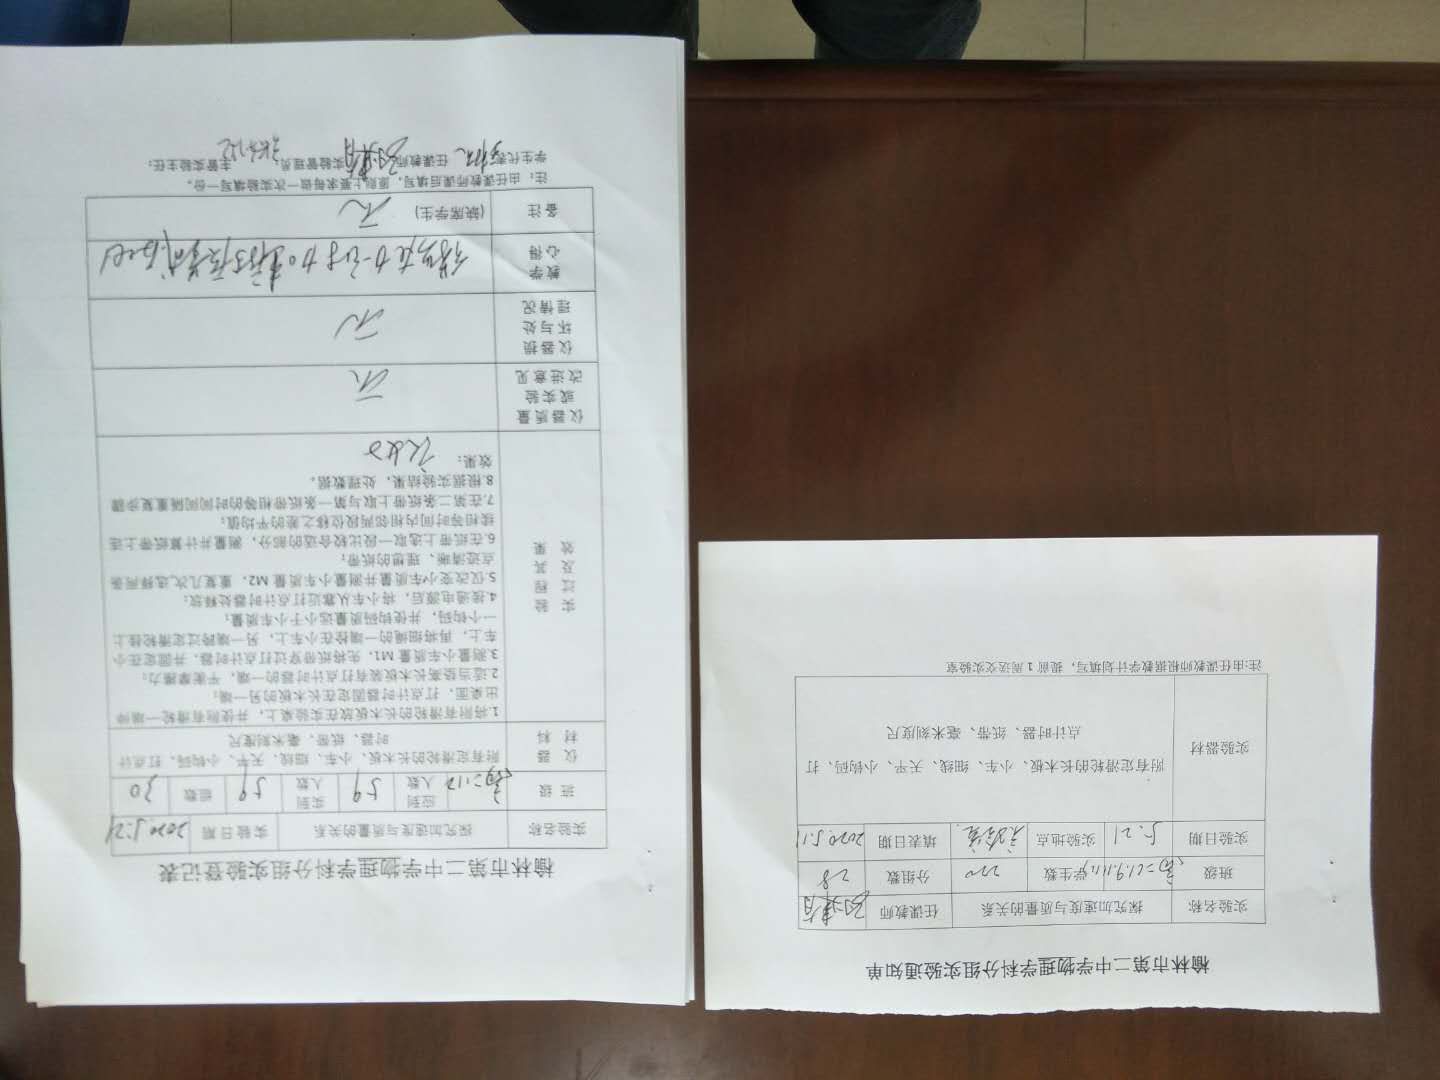 榆林市第二中学物理学科分组实验登记表
实验名称 探究加速度与质量的关系 实验日期 2020.5.21
班级 应到人数 59 实到人数 59 组数 30
仪器材料 附有定滑轮的长木板、小车、细线、天平、小钩码、打点计时器、纸带、毫米刻度尺
实验过程及其效果
1.将附有滑轮的长木板放在实验桌上，并使附有滑轮一端伸
出桌面，打点计时器固定在长木板的另一端；
2.适当垫高长木板装有打点计时器的一端，平衡摩擦力；
3.测量小车质量 M1，先将纸带穿过打点计时器，并固定在小
车上，再将细绳的一端栓在小车上，另一端跨过定滑轮挂上
一个钩码，并使钩码质量远小于小车质量；
4.接通电源后，将小车从靠近打点计时器处释放；
5.仅改变小车质量并测量小车质量 M2，重复几次,选择两条
点迹清晰、理想的纸带；
6.在纸带上选取一段比较合适的部分，测量并计算纸带上连
续相等时间内相邻两段位移之差的平均值；
7.在第二条纸带上取与第一条纸带相等的时间间隔重复步骤
8.根据实验结果，处理数据。
效果： 较好
仪器质量或实验改进意见 无
仪器损坏与处理情况 无
教学心得
备注 (缺席学生) 无
注：由任课教师课后填写，原则上要求每做一次实验填写一份。
学生代表： 任课教师： 实验管理员： 主管实验主任：
榆林市第二中学物理学科分组实验通知单
实验名称 探究加速度与质量的关系 任课教师
班级 学生数 220 分组数 28
实验日期 5.21 实验地点 实验室 填表日期 2020.5.11
实验器材 附有定滑轮的长木板、小车、细线、天平、小钩码、打
点计时器、纸带、毫米刻度尺
注:由任课教师根据教学计划填写，提前 1 周送交实验室